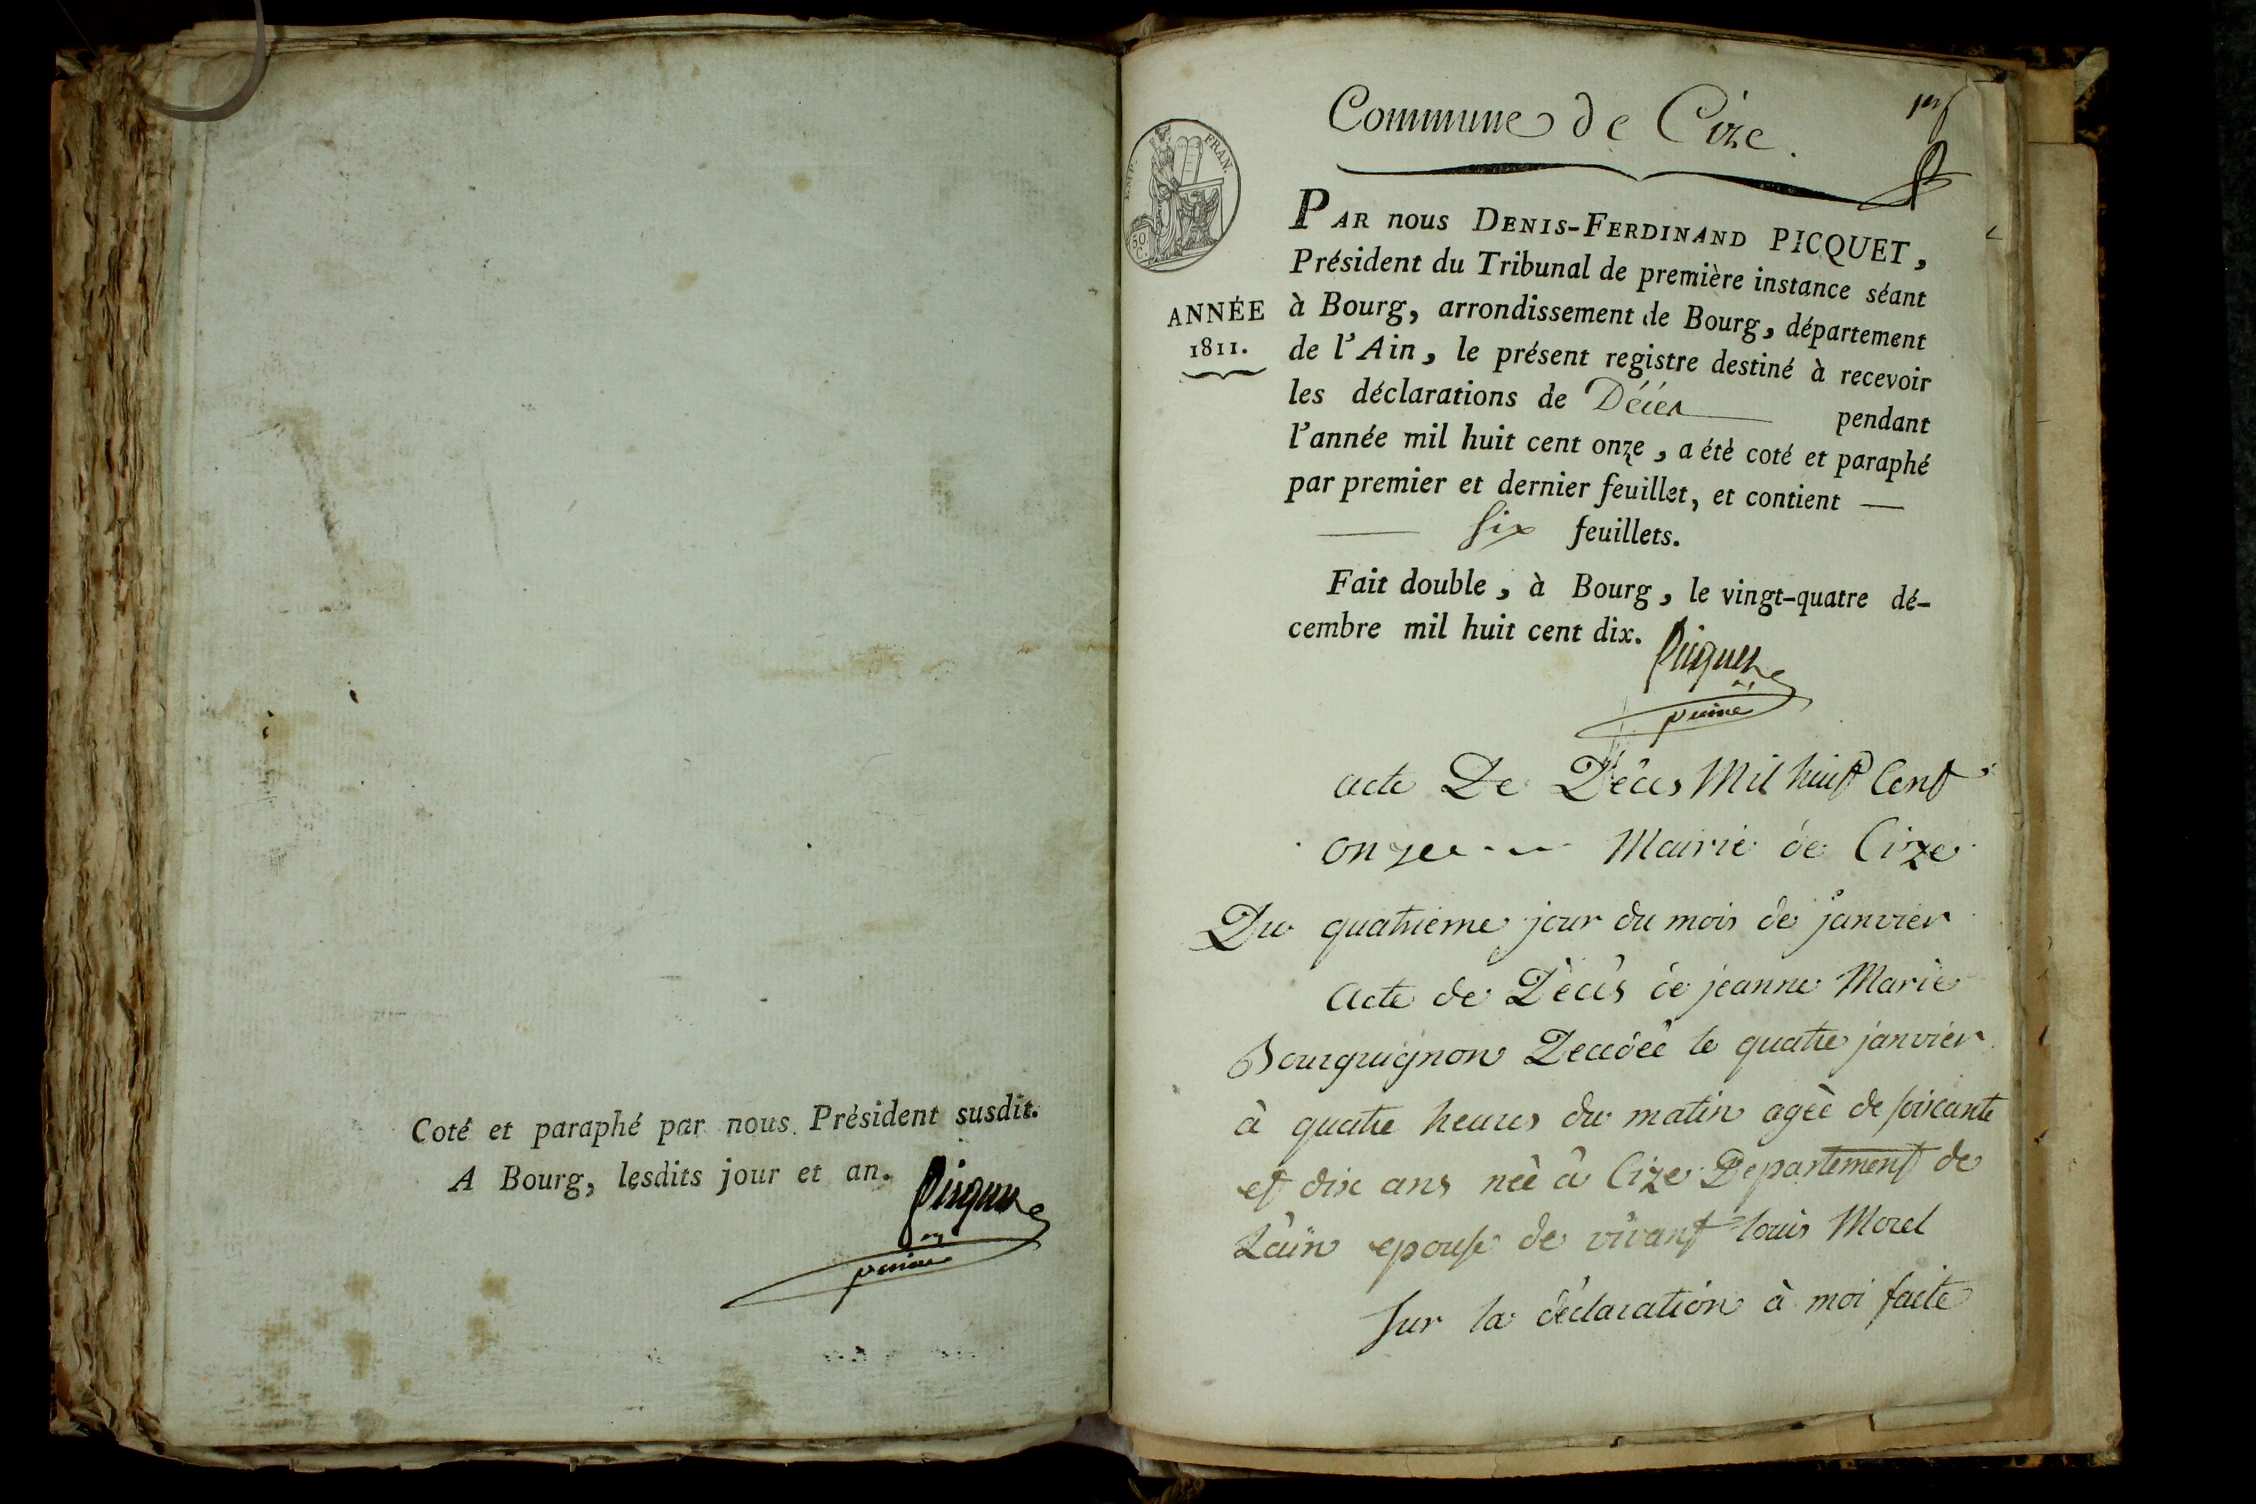 Coté et paraphé par nous Président susdit.
A Bourg, lesdits jour et an.
Picquet
Commune de Cize.
1er
EMP. FRAN.
50
C.
ANNÉE
1811.
PAR nous DENIS-FERDINAND PICQUET,
Président du Tribunal de première instance séant
à Bourg, arrondissement de Bourg, département
de l'Ain, le présent registre destiné à recevoir
les déclarations de Décès pendant
l'année mil huit cent onze, a étè coté et paraphé
par premier et dernier feuillet, et contient —
— six feuillets.
Fait double, à Bourg, le vingt-quatre dé-
cembre mil huit cent dix.
Picquet
acte De Décés Mil huit Cent
onze Mairie de Cize
Du quatrieme jour du mois de janvier
Acte de Décés de jeanne Marie
Bourguignon Decedée le quatre janvier
à quatre heures du matin agée de soixante
et dix ans née à Cize Departement de
L'ain epouse de vivant louis Morel
Sur la déclaration à moi faite